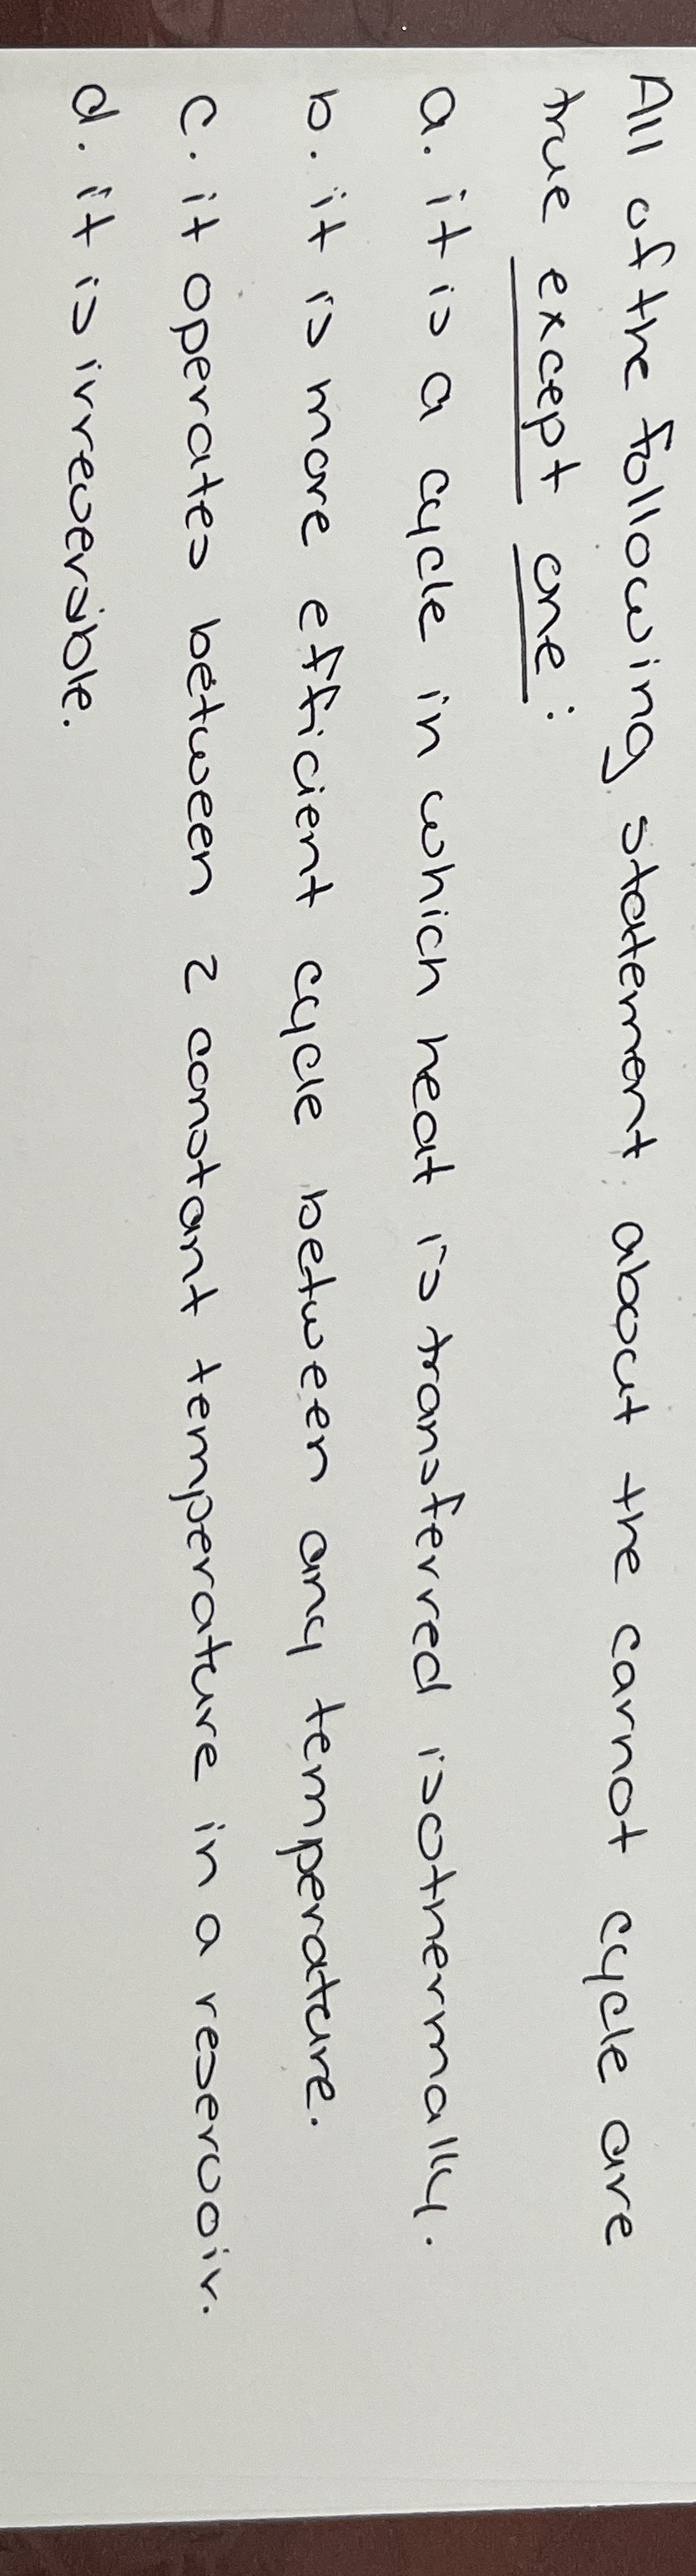 All of the following statement about the carnot cycle are
true except one:
a. it is a cycle in which heat is transferred isothermally.
b. it is more efficient cycle between any temperature.
c. it operates between 2 constant temperature in a reservoir.
d. it is irreversible.